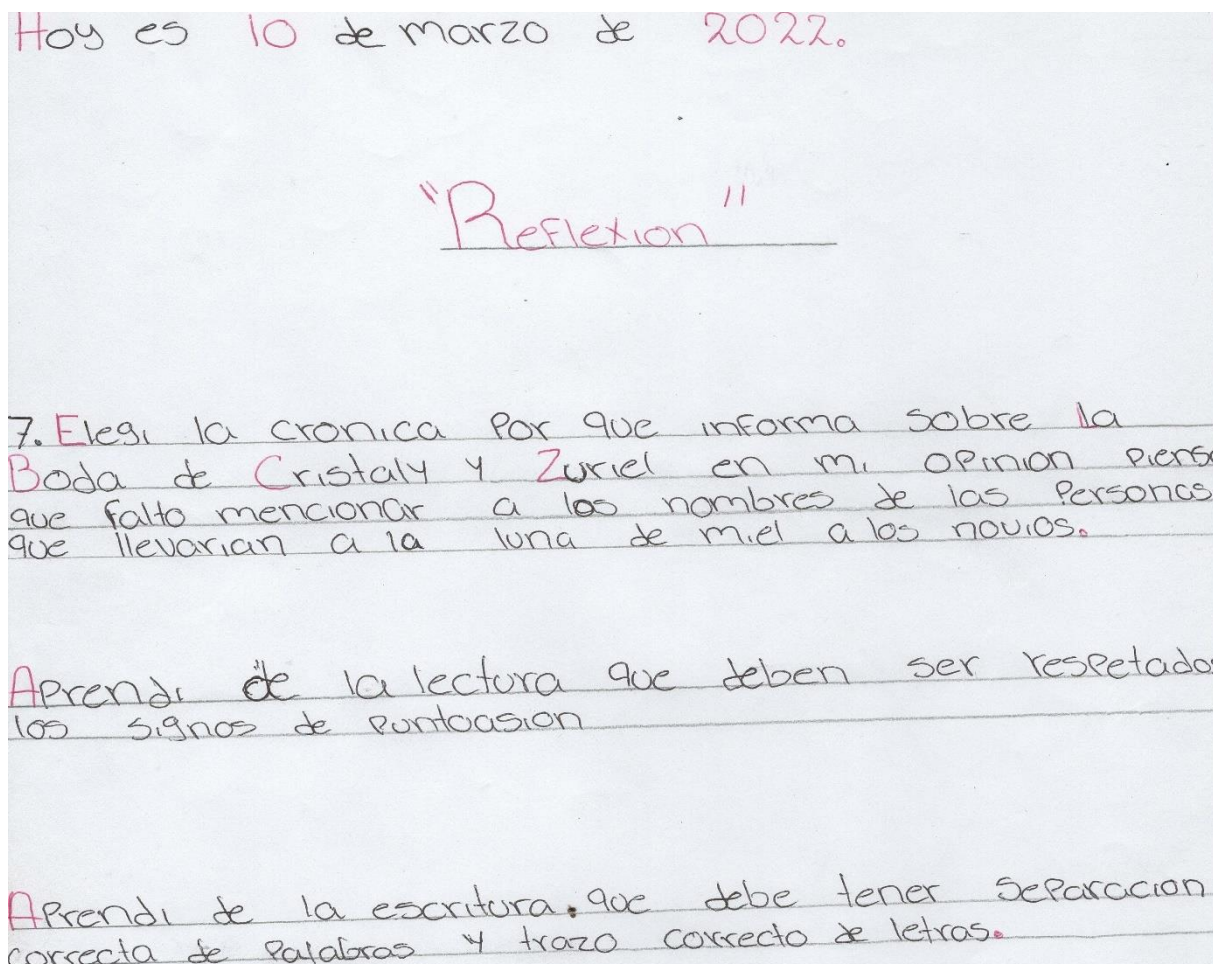 Hoy es 10 de marzo de 2022.
"Reflexion"
7. Elegi la cronica Por que informa sobre la
Boda de Cristaly y Zuriel en mi opinion piens
que falto mencionar a los nombres de las Personas
que llevarian a la luna de miel a los novios.
Aprendi de la lectura que deben ser respetados
los signos de puntuasion
Aprendi de la escritura. que debe tener separacion
correcta de palabras y trazo correcto de letras.